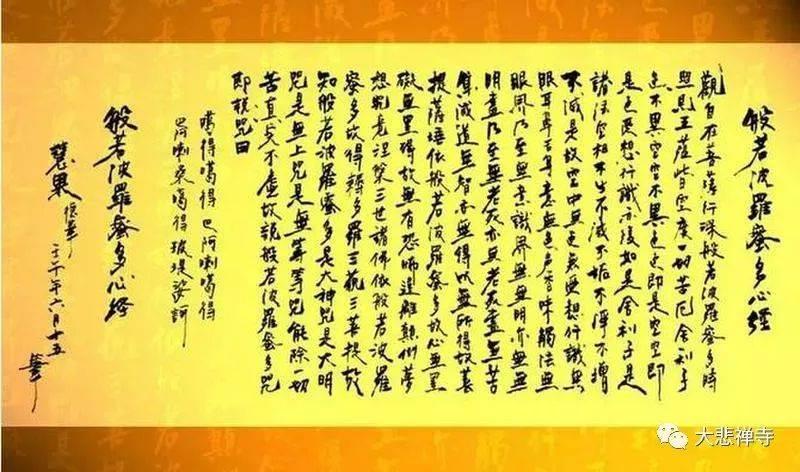 般若波羅蜜多心經
觀自在菩薩行深般若波羅蜜多時
照見五蘊皆空度一切苦厄舍利子
色不異空空不異色色即是空空即
是色受想行識亦復如是舍利子是
諸法空相不生不滅不垢不淨不增
不減是故空中無色無受想行識無
眼耳鼻舌身意無色聲香味觸法無
眼界乃至無意識界無無明亦無無
明盡乃至無老死亦無老死盡無苦
集滅道無智亦無得以無所得故菩
提薩埵依般若波羅蜜多故心無罣
礙無罣礙故無有恐怖遠離顛倒夢
想究竟涅槃三世諸佛依般若波羅
蜜多故得耨多羅三藐三菩提故
知般若波羅蜜多是大神咒是大明
咒是無上咒是無等等咒能除一切
苦真實不虛故說般若波羅蜜多咒
即說咒曰
噶得噶得巴阿喇噶得
巴阿喇桑噶得玻堤娑訶
般若波羅蜜多心經
慧果
壬午年六月十五
大悲禅寺